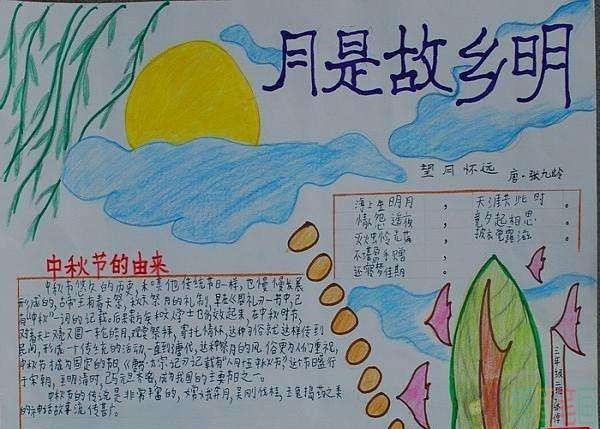 月是故乡明
望月怀远
唐·张九龄
海上生明月，天涯共此时。
情怨遥夜，竟夕起相思。
灭烛怜光满，披衣觉露滋。
不堪盈手赠
还寝梦佳期
中秋节的由来
中秋节悠久的历史，和其他传统节日一样，也慢慢发展
形成的，古帝王有春天祭日，秋天祭月的礼制，早在《周礼》一书中，已
有“中秋”一词的记载。后来贵族和文学士也仿效起来，在中秋时节，
对着天上又亮又圆一轮皓月，观赏祭拜，寄托情怀，这种习俗就这样传到
民间，形成一个传统的活动，一直到唐代，这种祭月的风俗更为人们重视，
中秋节才成为固定的节日，《唐书·太宗记》记载有“八月十五中秋节”这个节日盛行
于宋朝，至明清时，已与元旦齐名，成为我国的主要节日之一。
中秋节的传说是非常丰富的，嫦娥奔月，吴刚伐桂，玉兔捣药之类
的神话故事流传甚广。
三年级二班